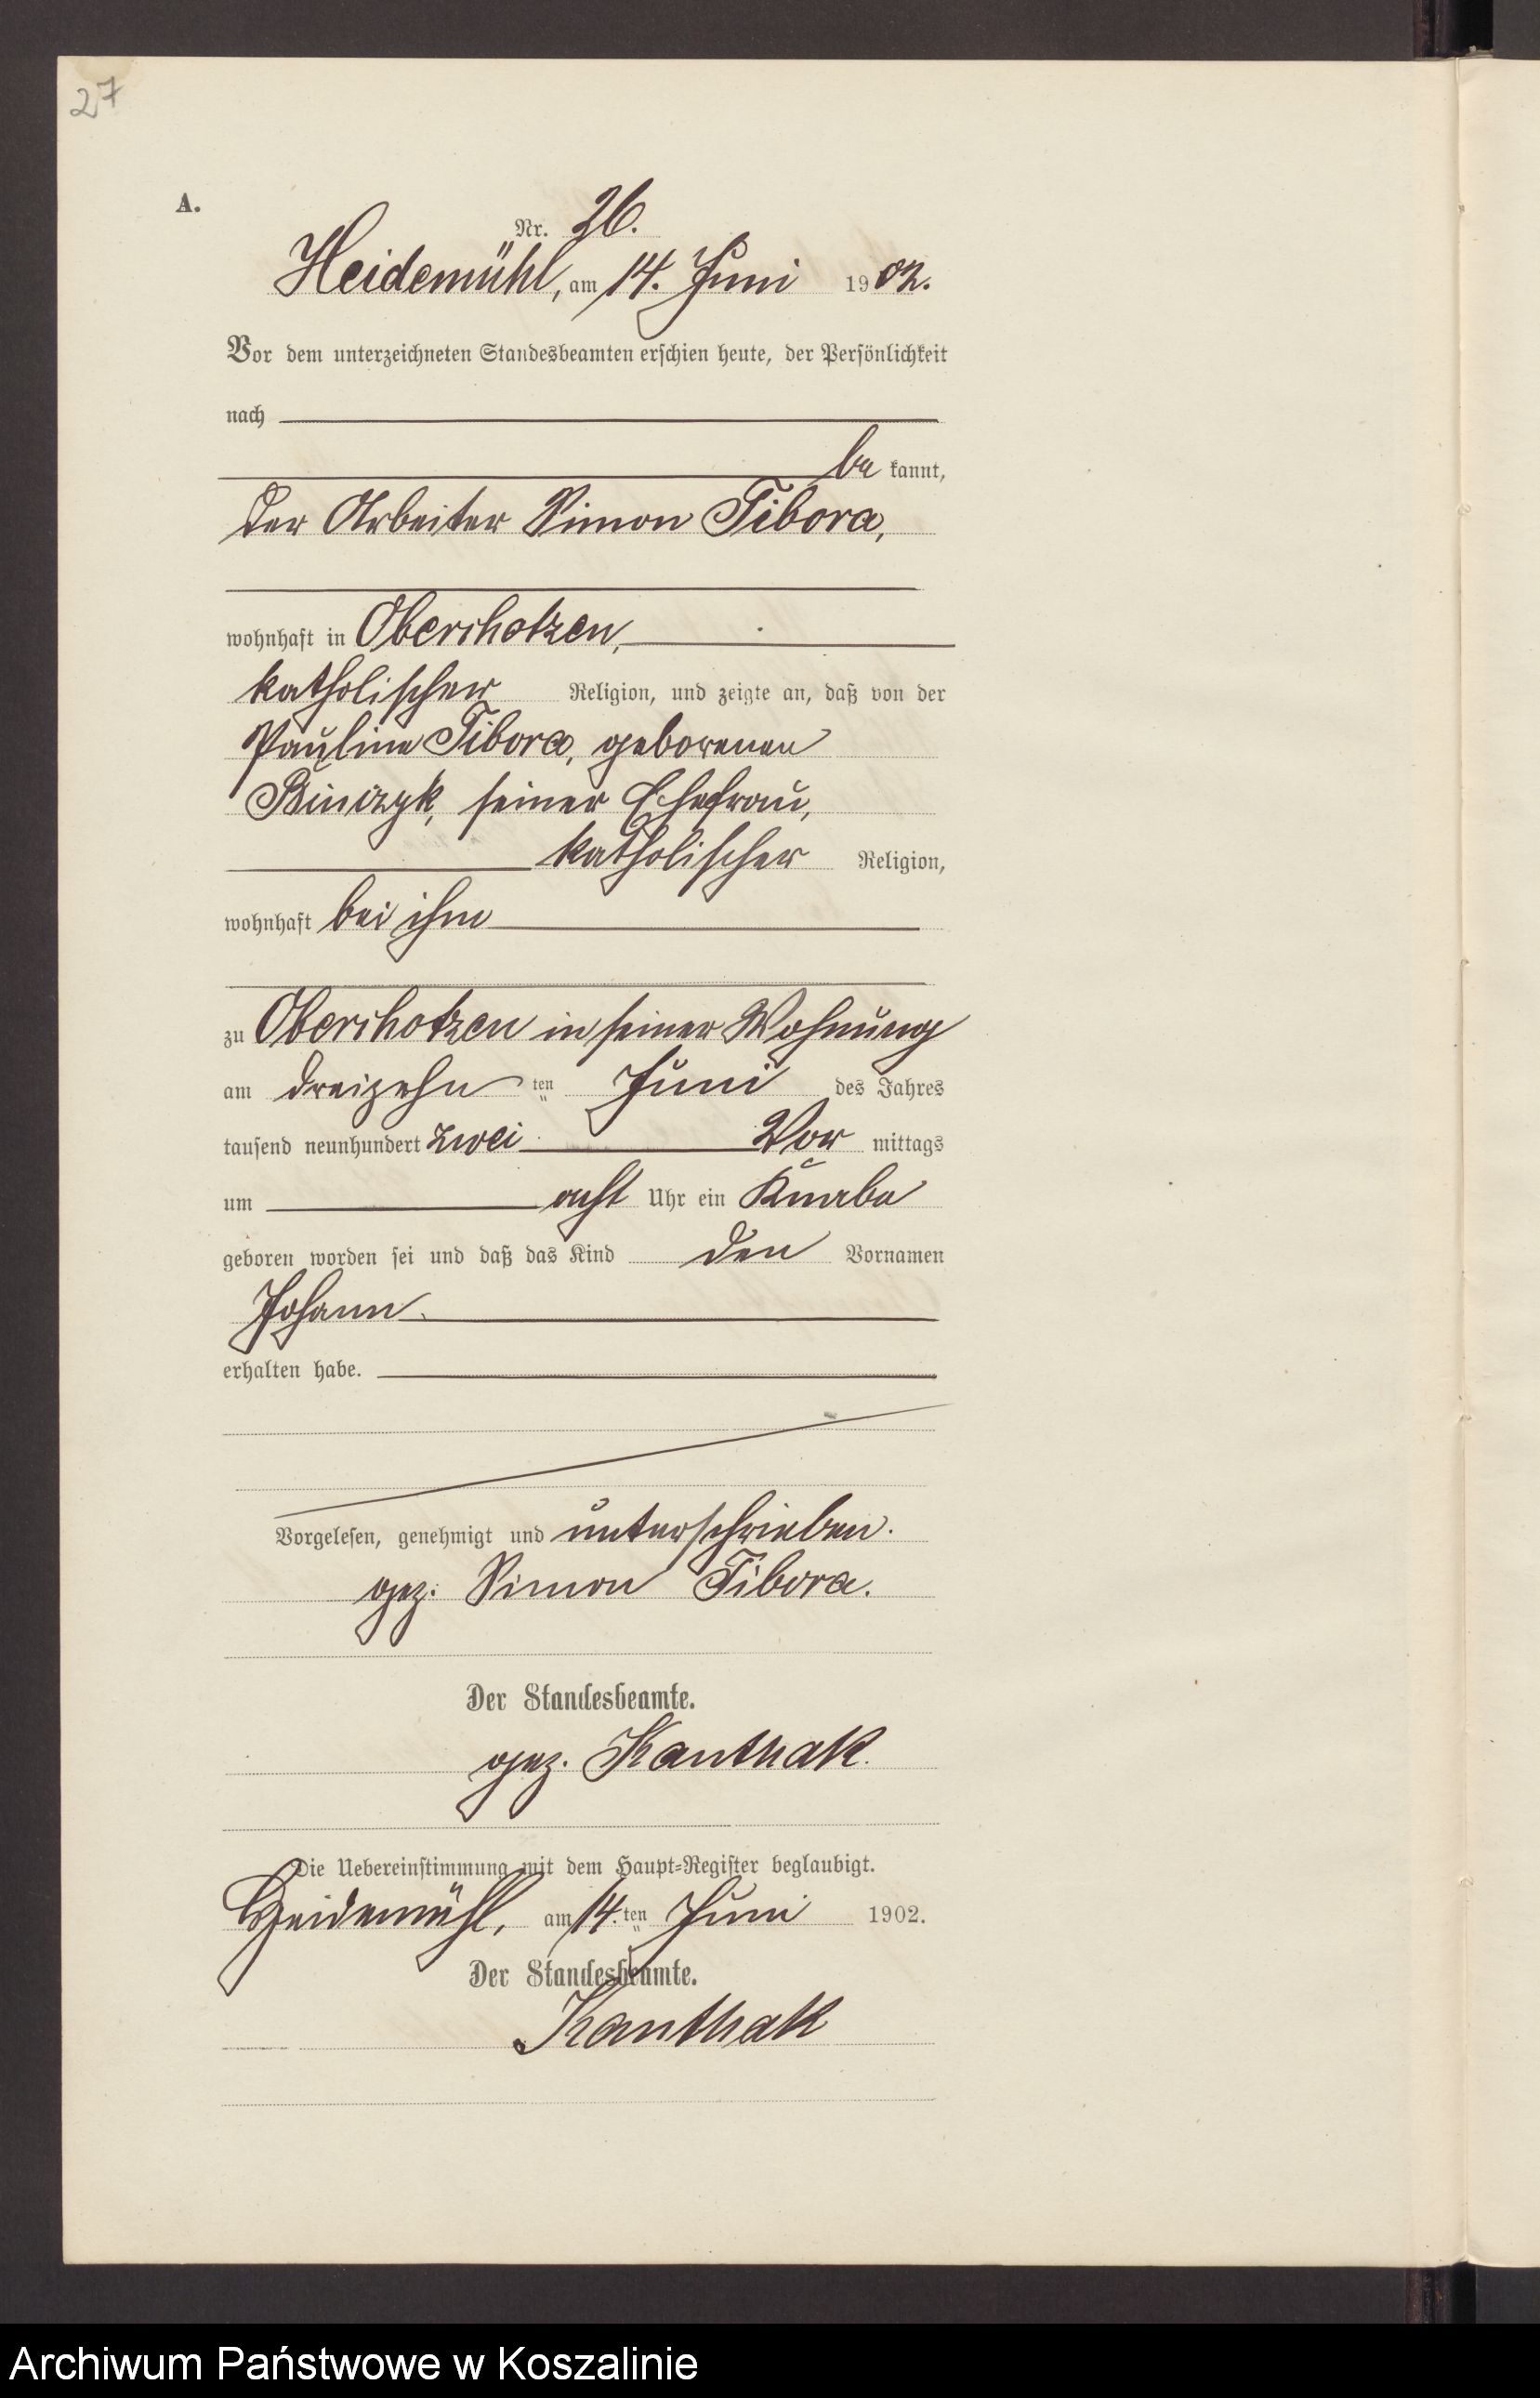 27
A.
Nr. 26.
Heidemühl, am 14. Juni 1902.
Vor dem unterzeichneten Standesbeamten erschien heute, der Persönlichkeit
nach
be kannt,
der Arbeiter Simon Tibora,
wohnhaft in Oberchotzen,
katholischer Religion, und zeigte an, daß von der
Pauline Tibora, geborenen
Binczyk, seiner Ehefrau,
katholischer Religion,
wohnhaft bei ihm
zu Oberchotzen in seiner Wohnung
am dreizehn ten Juni des Jahres
tausend neunhundert zwei Vor mittags
um acht Uhr ein Knabe
geboren worden sei und daß das Kind den Vornamen
Johann
erhalten habe.
Vorgelesen, genehmigt und unterschrieben.
gez. Simon Tibora.
Der Standesbeamte.
gez. Kanthak.
Die Uebereinstimmung mit dem Haupt-Register beglaubigt.
Heidemühl, am 14. ten Juni 1902.
Der Standesbeamte.
Kanthak
Archiwum Państwowe w Koszalinie